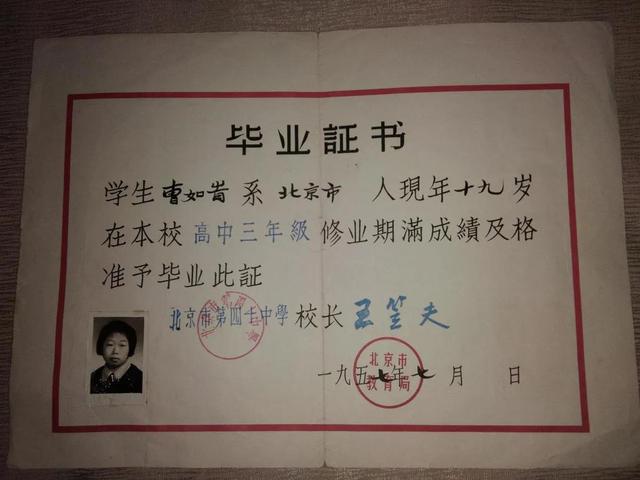 毕业証书
学生曹如 系北京市 人現年十九岁
在本校高中三年級修业期滿成績及格
准予毕业此証
北京市第四十中學校长王笠夫
北京市
教育局
一九五七年七月 日